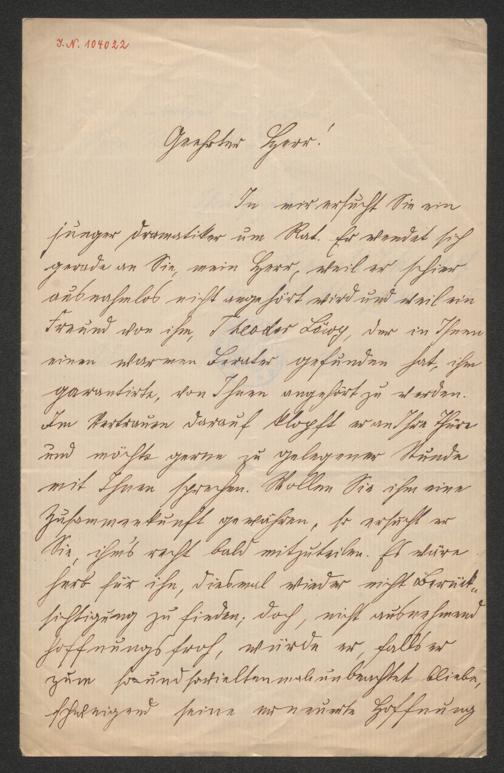 I.N. 104022
Geehrter Herr!
In mir ersucht Sie ein
junger Dramatiker um Rat. Er wendet sich
gerade an Sie, mein Herr, weil er schier
ausnahmslos nicht angehört wird und weil ein
Freund von ihm, Theodor Löwy, der in Ihnen
einen warmen Berater gefunden hat, ihm
garantirte, von Ihnen angehört zu werden.
Im Vertrauen darauf klopft er an Ihre Thüre
und möchte gerne zu gelegener Stunde
mit Ihnen sprechen. Wollen Sie ihm eine
Zusammenkunft gewähren, so ersucht er
Sie, ihm's recht bald mitzuteilen. Es wäre
herb für ihn, diesmal wieder nicht Berück-
sichtigung zu finden; doch, nicht ausnehmend
hoffnungsfroh, würde er, falls er
zum soundsovieltenmale unbeachtet bliebe,
schweigend seine erneuerte Hoffnung